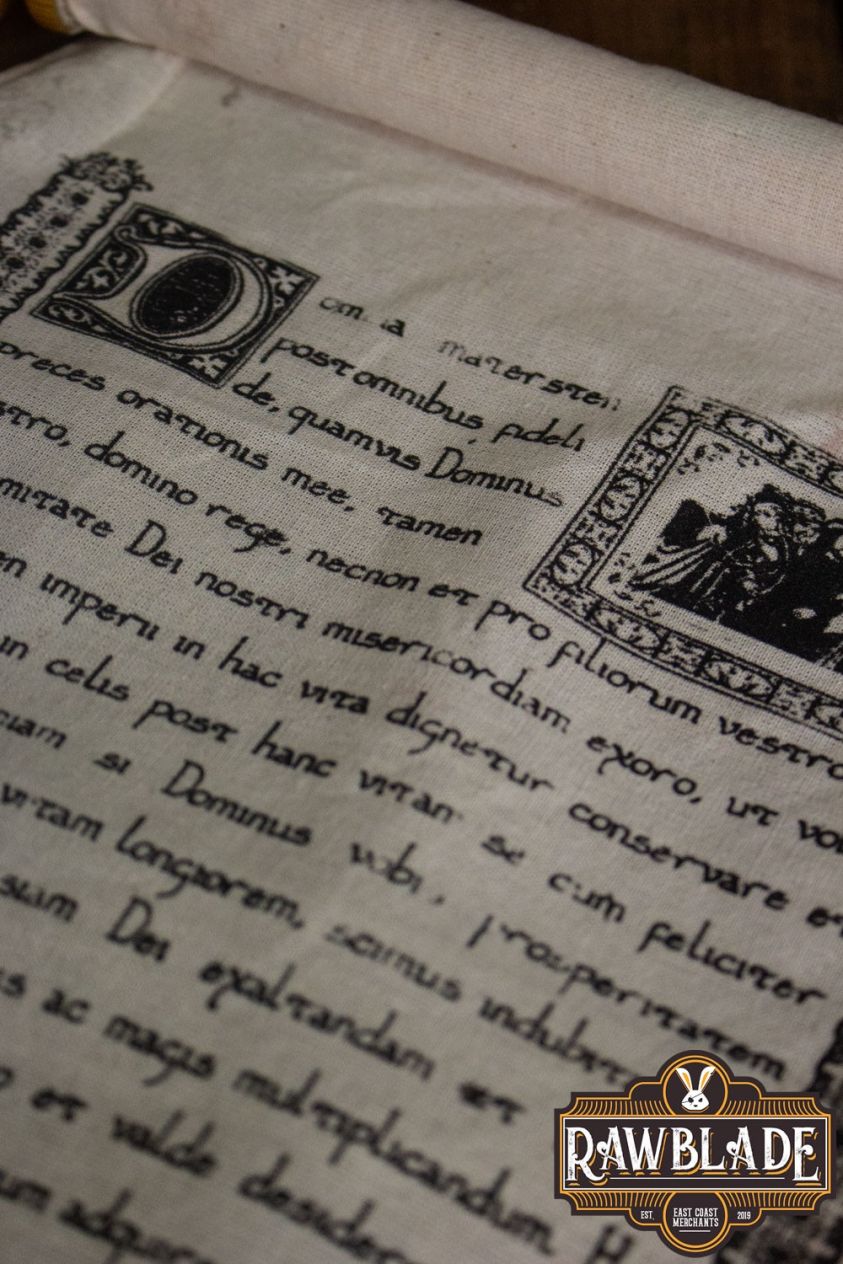 D
post omnibus fideli
de, quamvis Dominus
preces orationis mee, tamen
stro, domino rege, necnon et pro filiorum vestro
mitate Dei nostri misericordiam exoro, ut vo
en imperii in hac vita dignetur conservare et
in celis post hanc vitam se cum feliciter
ciam si Dominus vobi, prosperitatem
vitam longiorem, scimus indubit
suam Dei exaltandam et
s ac magis multiplicandum. H
o et valde desider
um adquir
RAWBLADE
EST. EAST COAST MERCHANTS 2019